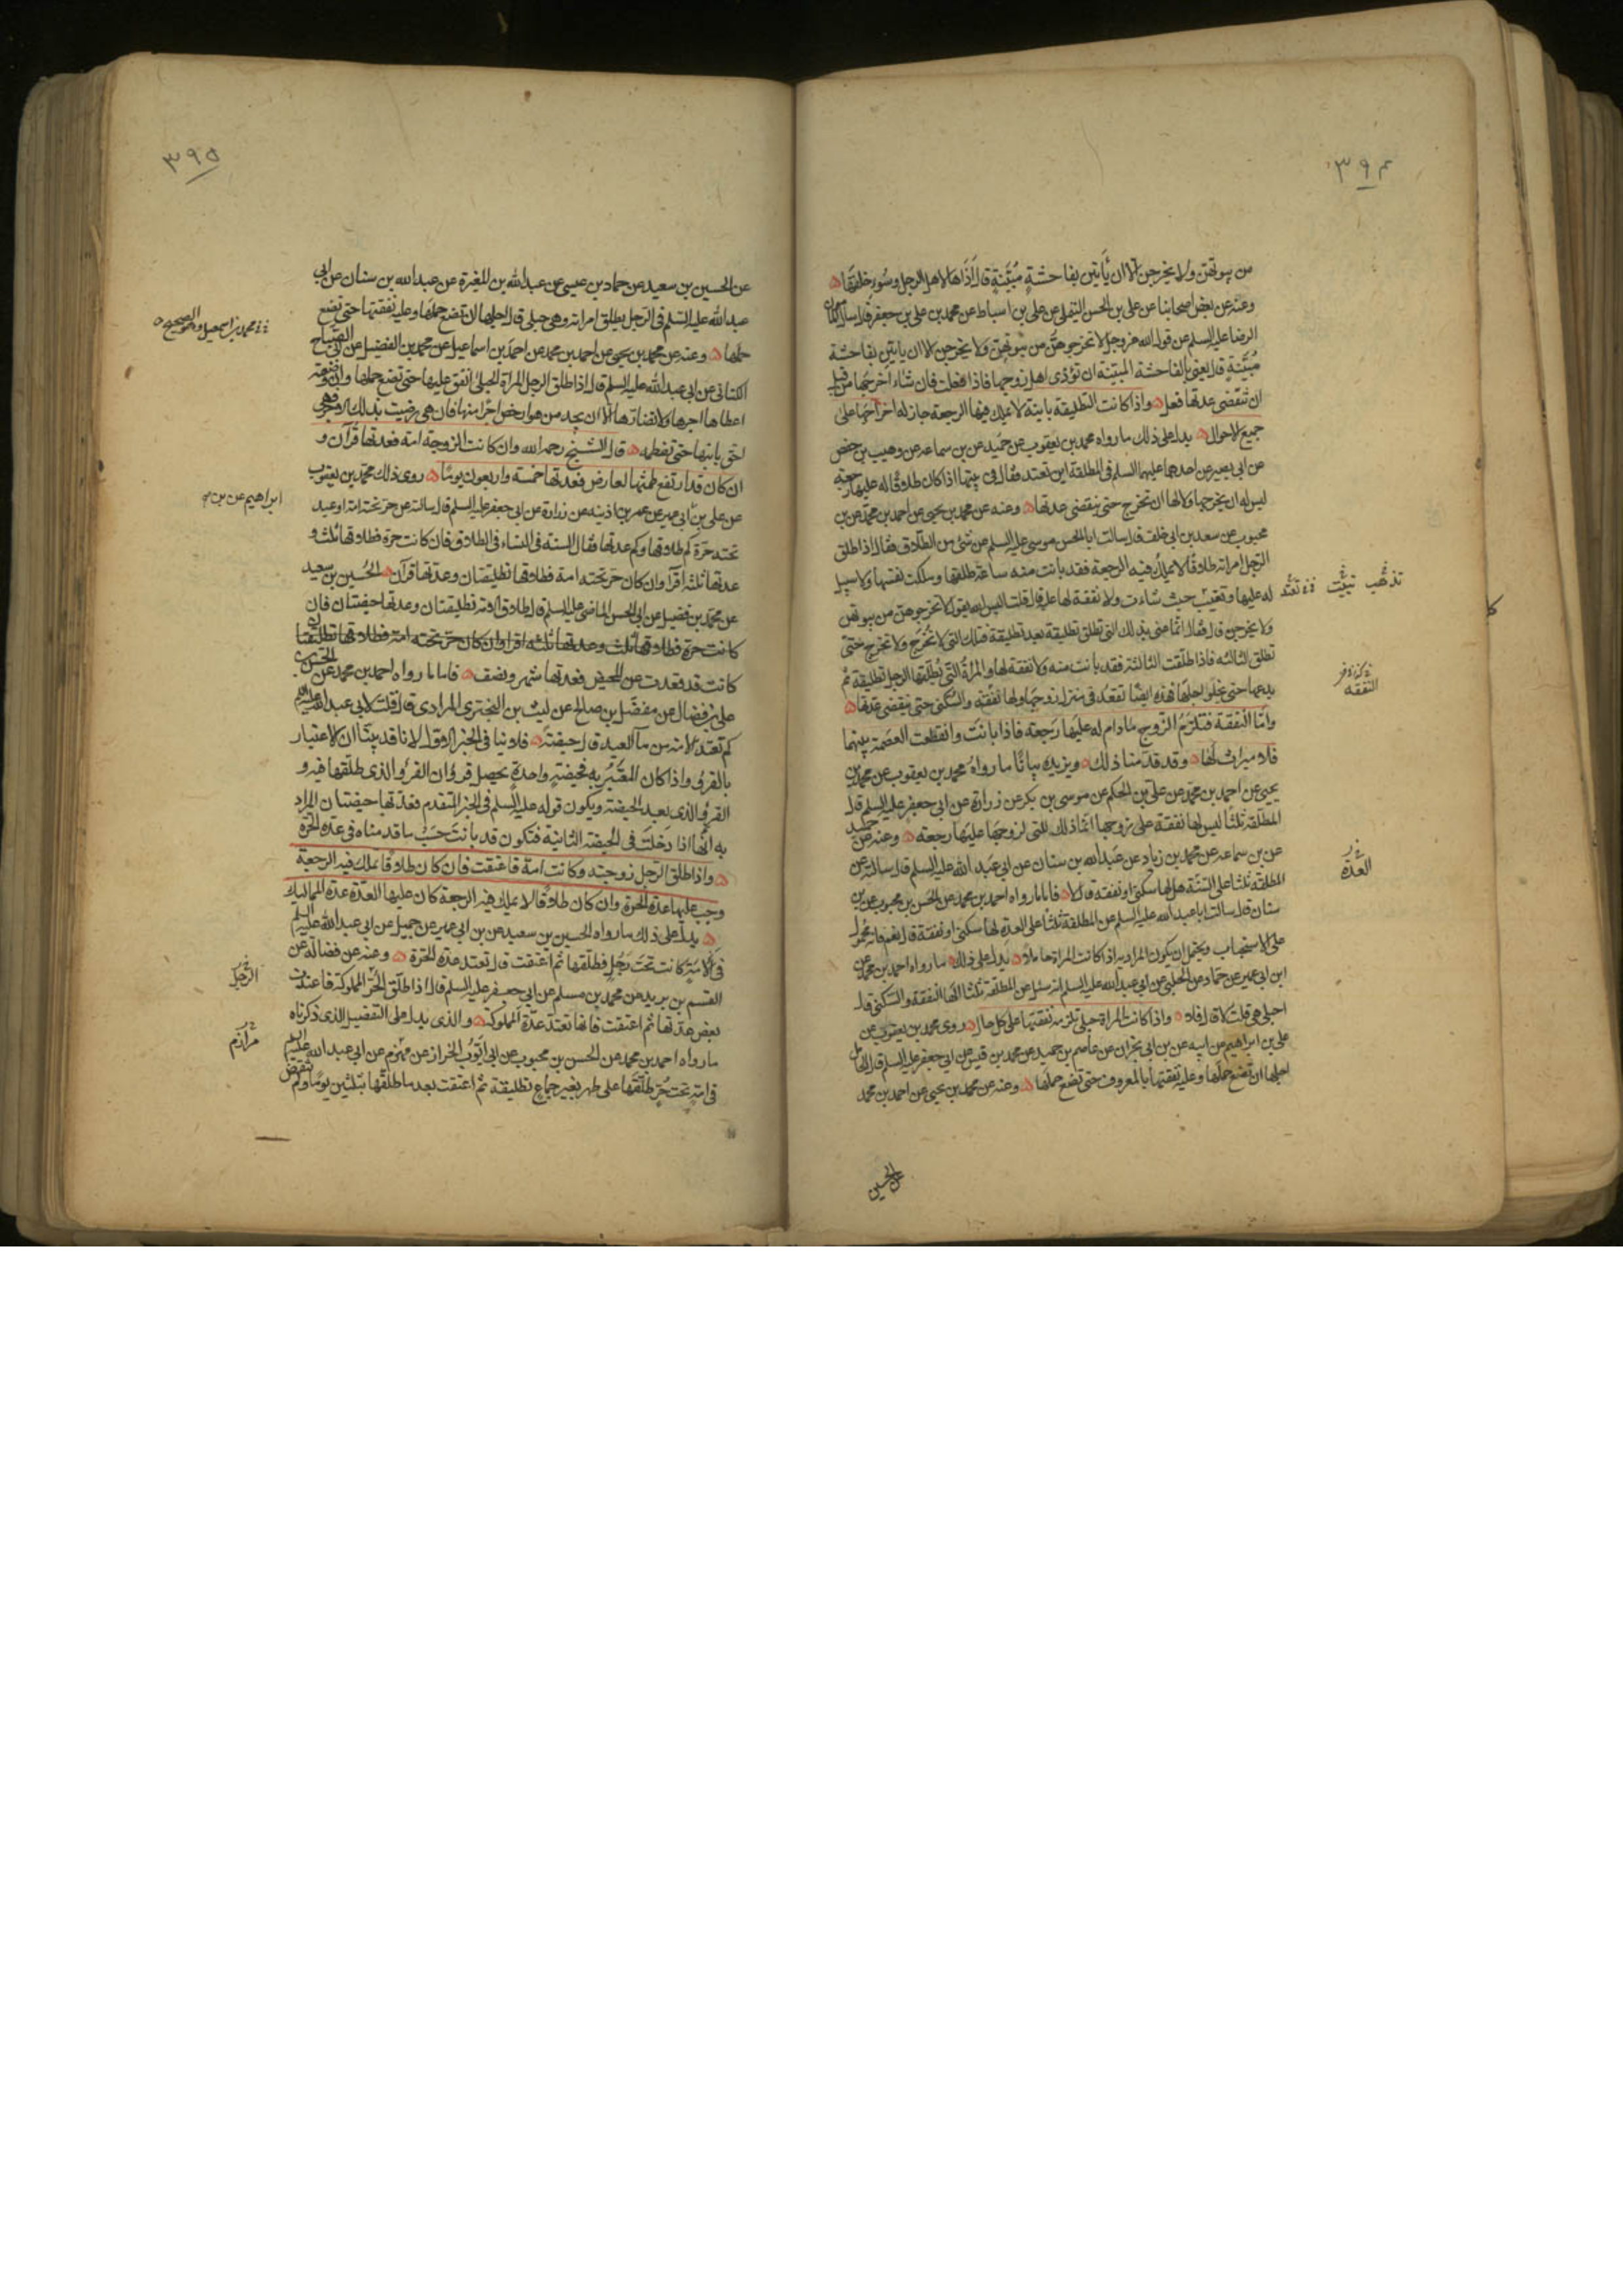 ٣٩٤
من بيوتهن ولا يخرجن الا ان يأتين بفاحشة مبيّنة قال اذاها لاهل الرجل وسوء خلقها
وعنه عن بعض اصحابنا عن علي بن الحسن التيملي عن علي بن اسباط عن محمد بن علي بن جعفر قال سال المامون
الرضا عليه السلم عن قول الله عز وجل لا تخرجوهن من بيوتهن ولا يخرجن الا ان ياتين بفاحشة
مبيّنة قال يعني بالفاحشة المبيّنة ان تؤذي اهل زوجها فاذا فعلت فان شاء اخرجها من قبل
ان تنقضي عدتها فعل واذا كانت التطليقة باينة لا يملك فيها الرجعة جاز له اخراجها على
جميع الاحوال يدل على ذلك ما رواه محمد بن يعقوب عن حميد عن بن سماعه عن وهيب بن حفص
عن ابي بصير عن احدهما عليهما السلم في المطلقة اين تعتد فقال في بيتها اذا كان طلاقا له عليها رجعة
ليس له ان يخرجها ولا لها ان تخرج حتى ينقضي عدتها وعنه عن محمد بن يحيى عن احمد بن محمد عن بن
محبوب عن سعد بن ابي خلف قال سالت ابا الحسن موسى عليه السلم عن شئ من الطلاق فقال اذا طلق
الرجل امراته طلاقا لا يملك فيه الرجعة فقد بانت منه ساعة طلقها وملكت نفسها ولا سبيل
له عليها وتعتد حيث شاءت ولا نفقة لها عليه قال قلت اليس الله يقول لا تخرجوهن من بيوتهن
ولا يخرجن قال فقال انما عنى بذلك التي تطلق تطليقة بعد تطليقة فتلك التي لا تُخرَج ولا تخرج حتى
تطلق الثالثه فاذا طلقت الثالثة فقد بانت منه ولا نفقة لها والمرأة التي يُطلّقها الرجل تطليقة ثم
يدعها حتى يخلو اجلها فهذه ايضًا تقعد في منزل زوجها ولها النفقة والسكنى حتى ينقضي عدتها
وامّا النفقة فتلزم الزوج مادام له عليها رجعة فاذا بانت وانقطعت العصمة بينهما
فلا ميراث لها وقد قدمنا ذلك ويزيده بيانًا ما رواه محمد بن يعقوب عن محمد بن
يحيى عن احمد بن محمد عن علي بن الحكم عن موسى بن بكر عن زرارة عن ابي جعفر عليه السلم قال
المطلقة ثلثا ليس لها نفقة على زوجها انما ذلك للتي لزوجها عليها رجعه وعنه عن حميد
عن بن سماعه عن محمد بن زياد عن عبد الله بن سنان عن ابي عبد الله عليه السلم قال سالته عن
المطلقه ثلثا على السنة هل لها سكنى او نفقه قال لا فاما ما رواه احمد بن محمد عن الحسن بن محبوب عن بن
سنان قال سالت ابا عبد الله عليه السلم عن المطلقة ثلثا على العدة لها سكنى او نفقة قال نعم فانه محمول
على الاستحباب ويحتمل ان يكون المراد به اذا كانت المراة حاملا يدل على ذلك ما رواه احمد بن محمد عن
ابن ابي عمير عن حماد عن الحلبي عن ابي عبد الله عليه السلم انه سئل عن المطلقة ثلثا الها النفقة والسكنى قال
احبلى هي قلت لا قال فلا واذا كانت المراة حبلى تلزمه نفقتها على كل حال روى محمد بن يعقوب عن
علي بن ابراهيم عن ابيه عن بن ابي نجران عن عاصم بن حميد عن محمد بن قيس عن ابي جعفر عليه السلم قال الحامل
اجلها ان تضع حملها وعليه نفقتها بالمعروف حتى تضع حملها وعنه عن محمد بن يحيى عن احمد بن محمد
تذهب
النفقه
العدة
عن الحسين
٣٩٥
عن الحسين بن سعيد عن حماد بن عيسى عن عبد الله بن المغيرة عن عبد الله بن سنان عن ابي
عبد الله عليه السلم في الرجل يطلق امراته وهي حبلى قال اجلها ان تضع حملها وعليه نفقتها حتى تضع
حملها وعنه عن محمد بن يحيى عن احمد بن محمد عن احمد بن اسماعيل عن محمد بن الفضيل عن ابي الصباح
الكناني عن ابي عبد الله عليه السلم قال اذا طلق الرجل المرأة الحبلى انفق عليها حتى تضع حملها وان ارضعته
اعطاها اجرها ولا تضارها الا ان يجد من هو ارخص اجرًا منها فان هي رضيت بذلك الاجر فهي
احق بابنها حتى تفطمه قال الشيخ رحمه الله وان كانت الزوجة امة فعدتها قرآن و
ان كان قد ارتفع طمثها لعارض فعدتها خمسة واربعون يومًا روى ذلك محمد بن يعقوب
عن علي بن ابي عمير عن عمر بن اذينه عن زرارة عن ابي جعفر عليه السلم قال سالته عن حر تحته امة او عبد
تحته حرة كم طلاقها وكم عدتها فقال السنه في النساء في الطلاق فان كانت حرة فطلاقها ثلث و
عدتها ثلثه اقرآ وان كان حر تحته امة فطلاقها تطليقتان وعدتها قرآن الحسين بن سعيد
عن محمد بن فضيل عن ابي الحسن الماضي عليه السلم قال طلاق الامة تطليقتان وعدتها حيضتان فان
كانت حرة فطلاقها ثلث وعدتها ثلثه اقرا وان كان حر تحته امة فطلاقها تطليقتان
كانت قد قعدت عن المحيض فعدتها شهر ونصف فاما ما رواه احمد بن محمد عن الحسن بن
علي بن فضال عن مفضل بن صالح عن ليث بن البختري المرادي قال قلت لابي عبد الله عليه السلم
كم تعتد الامة من ماء العبد قال حيضة فلا ينافي الخبر الاول لانا قد بينّا ان الاعتبار
بالقرؤ واذا كان المعتبر به فبحيضة واحدة يحصل قرؤان القرؤ الذي طلقها فيه و
القرؤ الذي بعد الحيضة ويكون قوله عليه السلم في الخبر المتقدم فعدتها حيضتان المراد
به انها اذا دخلت في الحيضة الثانية فتكون قد بانت حسب ما قدمناه في عدة الحرة
واذا طلق الرجل زوجته وكانت امة فاعتقت فان كان طلاقا يملك فيه الرجعة
وجب عليها عدة الحرة وان كان طلاقا لا يملك فيه الرجعة كان عليها العدة عدة المماليك
يدل على ذلك ما رواه الحسين بن سعيد عن بن ابي عمير عن جميل عن ابي عبد الله عليه السلم
في الامة كانت تحت رجل فطلقها ثم اعتقت قال تعتد عدة الحرة وعنه عن فضالة عن
القسم بن بريد عن محمد بن مسلم عن ابي جعفر عليه السلم قال اذا طلق الحر المملوكة فاعتدت
بعض عدتها ثم اعتقت فانها تعتد عدة المملوكة والذي يدل على التفصيل الذي ذكرناه
ما رواه احمد بن محمد عن الحسن بن محبوب عن ابي ايوب الخراز عن مهزم عن ابي عبد الله عليه السلم
في امة تحت حر طلقها على طهر بغير جماع تطليقة ثم اعتقت بعد ما طلقها بثلثين يومًا ولم تنقض
محمد بن اسمعيل وهو الصحيح
ابراهيم عن بن
الرجل
مرازم